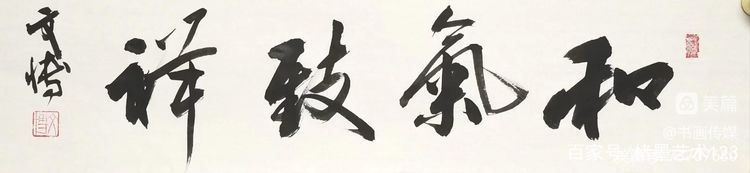 和氣致祥
文博
美篇
@书画传媒
百家号/楮墨艺术123